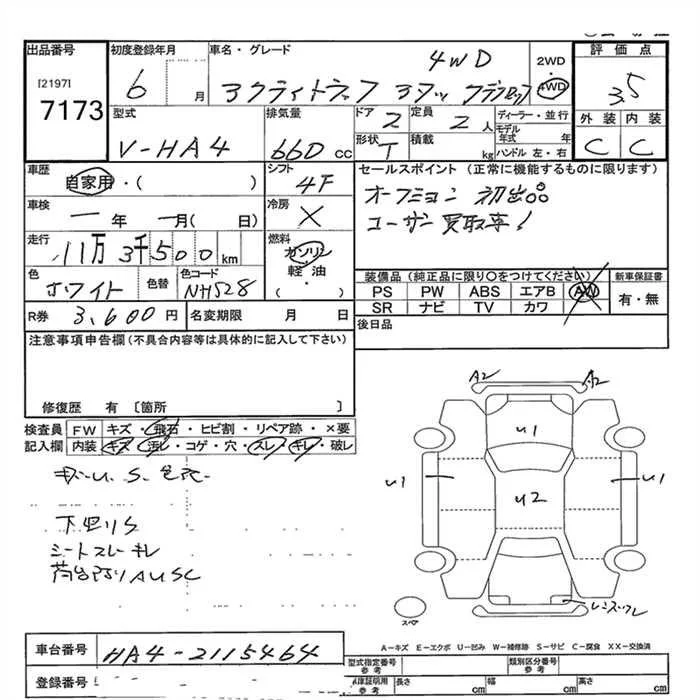 出品番号 初度登録年月 車名・グレード 評価点
[2197]
7173
6 月
4WD
アクティトラック アタック
2WD
4WD
3.5
型式 排気量 ドア 定員 ディーラー・並行 外装 内装
V-HA4 660 cc 2 2人 モデル年式 年 C C
形状 T 積載 kg ハンドル 左・右
車歴 シフト セールスポイント (正常に機能するものに限ります)
自家用・( ) 4F
オークション初出品
ユーザー買取車!
車検 冷房
一年 一月( 日) ×
走行 燃料
11万3千500km ガソリン
軽・油
( )
色 色替 色コード
ホワイト NH528
装備品 (純正品に限り〇をつけてください) 新車保証書
PS PW ABS エアB AW 有・無
SR ナビ TV カワ
R券 3,600円 名変期限 月 日 後日品
注意事項申告欄 (不具合内容等は具体的に記入して下さい)
修復歴 有 〔箇所 〕
検査員 FW キズ・飛石・ヒビ割・リペア跡・×要
記入欄 内装 キズ・汚レ・コゲ・穴・スレ・キレ・破レ
下回りS
シートスレ・キレ
荷台周りAUSC
A2 A2
U1
U1 U1
U2
スペア
車台番号 HA4-2115464
A-キズ E-エクボ U-凹み W-補修跡 S-サビ C-腐食 XX-交換済
登録番号
型式指定番号 参考 類別区分番号 参考
車庫証明用 参考 長さ cm 幅 cm 高さ cm